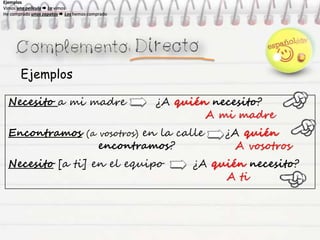 Ejemplos
Vimos una película La vimos
He comprado unos zapatos Los hemos comprado
Complemento Directo
españolízate
Ejemplos
Necesito a mi madre ¿A quién necesito?
A mi madre
Encontramos (a vosotros) en la calle ¿A quién
encontramos? A vosotros
Necesito [a ti] en el equipo ¿A quién necesito?
A ti